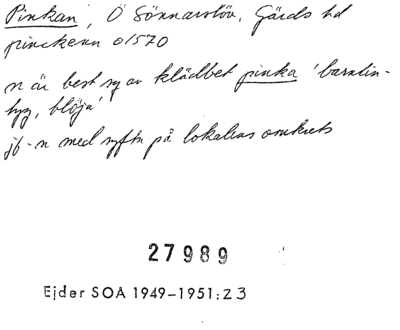 Pinkan, Ö Sönnarslöv, Gärds hd
pinckenn o1570
n är best sg av klädbet pinka 'barnlin-
tyg, blöja'
jb-n med syftn på lokalens omkrets
27989
Ejder SOA 1949-1951:23